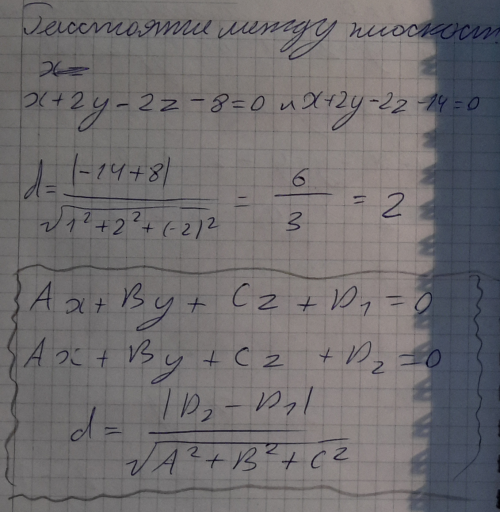 Расстояние между плоскост
x=
x+2y-2z-8=0 и x+2y-2z-14=0
d= |-14+8| / √1²+2²+(-2)² = 6/3 = 2
Ax+By+Cz+D₁=0
Ax+By+Cz+D₂=0
d= |D₂-D₁| / √A²+B²+C²